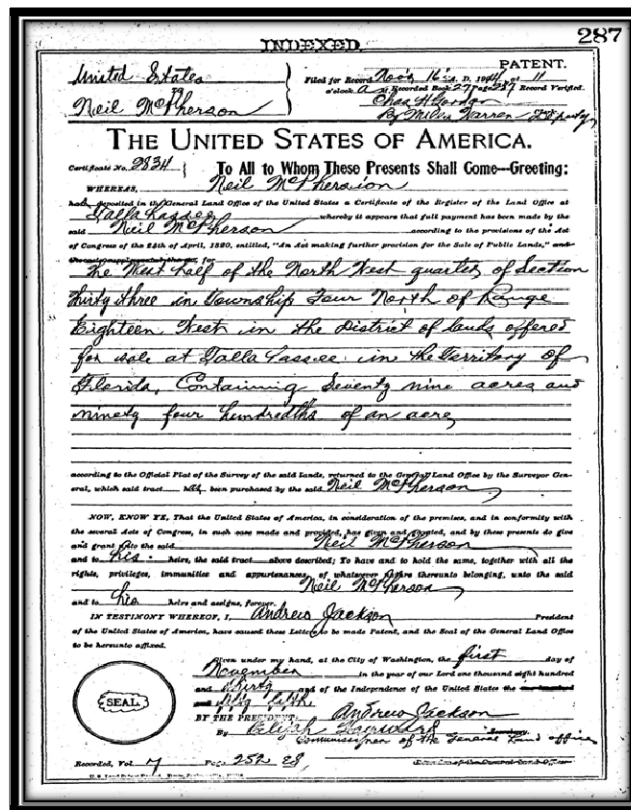 287
INDEXED
PATENT.
United States
to
Neil McPherson
Filed for Record Nov's 16 A. D. 19 at 11
o'clock a M. Recorded Book 27 Page 287 Record Verified.
Chas H
By Miles Warren Deputy
THE UNITED STATES OF AMERICA.
Certificate No. 2834
To All to Whom These Presents Shall Come---Greeting:
WHEREAS, Neil McPherson
ha deposited in the General Land Office of the United States a Certificate of the Register of the Land Office at
Talla hassee whereby it appears that full payment has been made by the
said Neil McPherson according to the provisions of the Act
of Congress of the 24th of April, 1820, entitled, "An Act making further provision for the Sale of Public Lands," and
for
the West half of the North West quarter, of Section
thirty three in Township Four North of Range
Eighteen West in the District of lands offered
for sale at Talla hassee in the Territory of
Florida, Containing Seventy nine acres and
ninety four hundredths of an acre,
according to the Official Plat of the Survey of the said Lands, returned to the General Land Office by the Surveyor Gen-
eral, which said tract has been purchased by the said Neil McPherson
NOW, KNOW YE, That the United States of America, in consideration of the premises, and in conformity with
the several Acts of Congress, in such case made and provided, has given and granted, and by these presents do give
and grant unto the said Neil McPherson
and to his heirs, the said tract above described; To have and to hold the same, together with all the
rights, privileges, immunities and appurtenances, of whatsoever nature thereunto belonging, unto the said
Neil McPherson
and to his heirs and assigns, forever.
IN TESTIMONY WHEREOF, I, Andrew Jackson President
of the United States of America, have caused these Letters to be made Patent, and the Seal of the General Land Office
to be hereunto affixed.
Given under my hand, at the City of Washington, the first day of
November in the year of our Lord one thousand eight hundred
and thirty and of the Independence of the United States the
fifty fifth
SEAL
BY THE PRESIDENT: Andrew Jackson
By Elijah Hayward Secretary.
Commissioner of the General Land office
Recorded, Vol. 7 Page 252